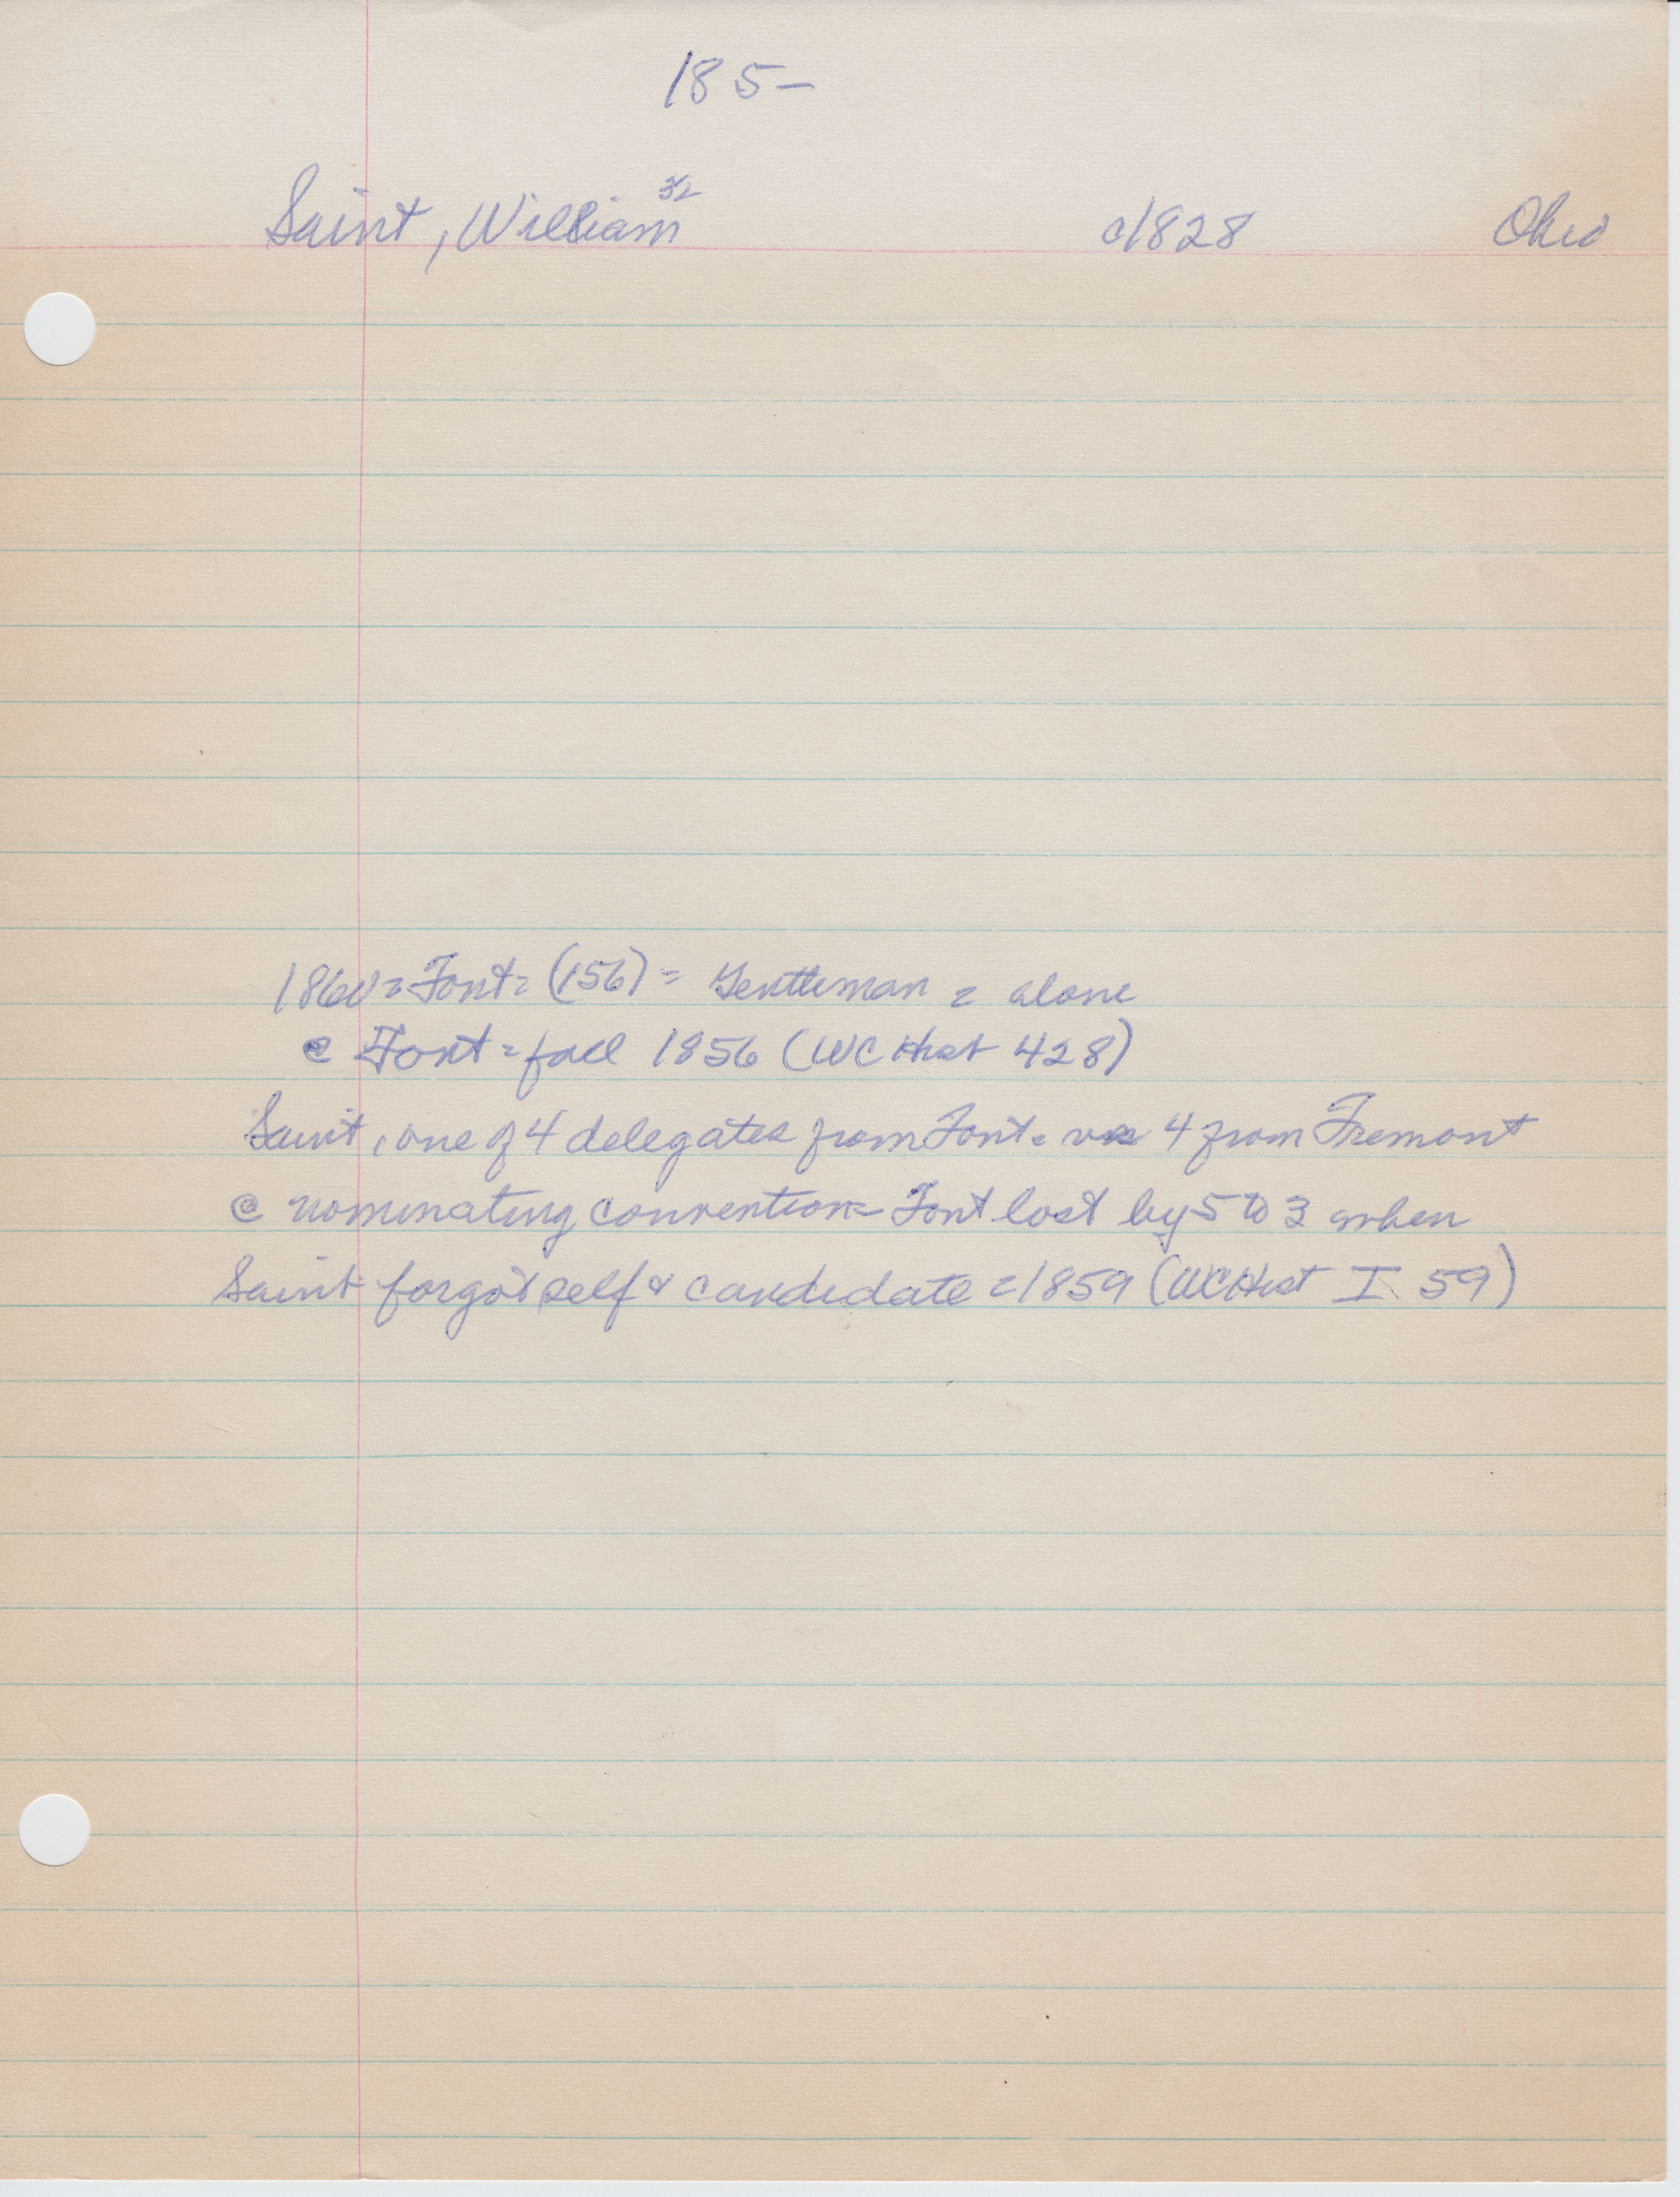 185-
Saint, William 32 c1828 Ohio
1860 = Font = (156) = Gentleman = alone
@ Font = fall 1856 (WC Hist 428)
Saint, one of 4 delegates from Font = vs 4 from Fremont
@ nominating convention = Font lost by 5 to 3 when
Saint forgot self & candidate = 1859 (WC Hist I 59)